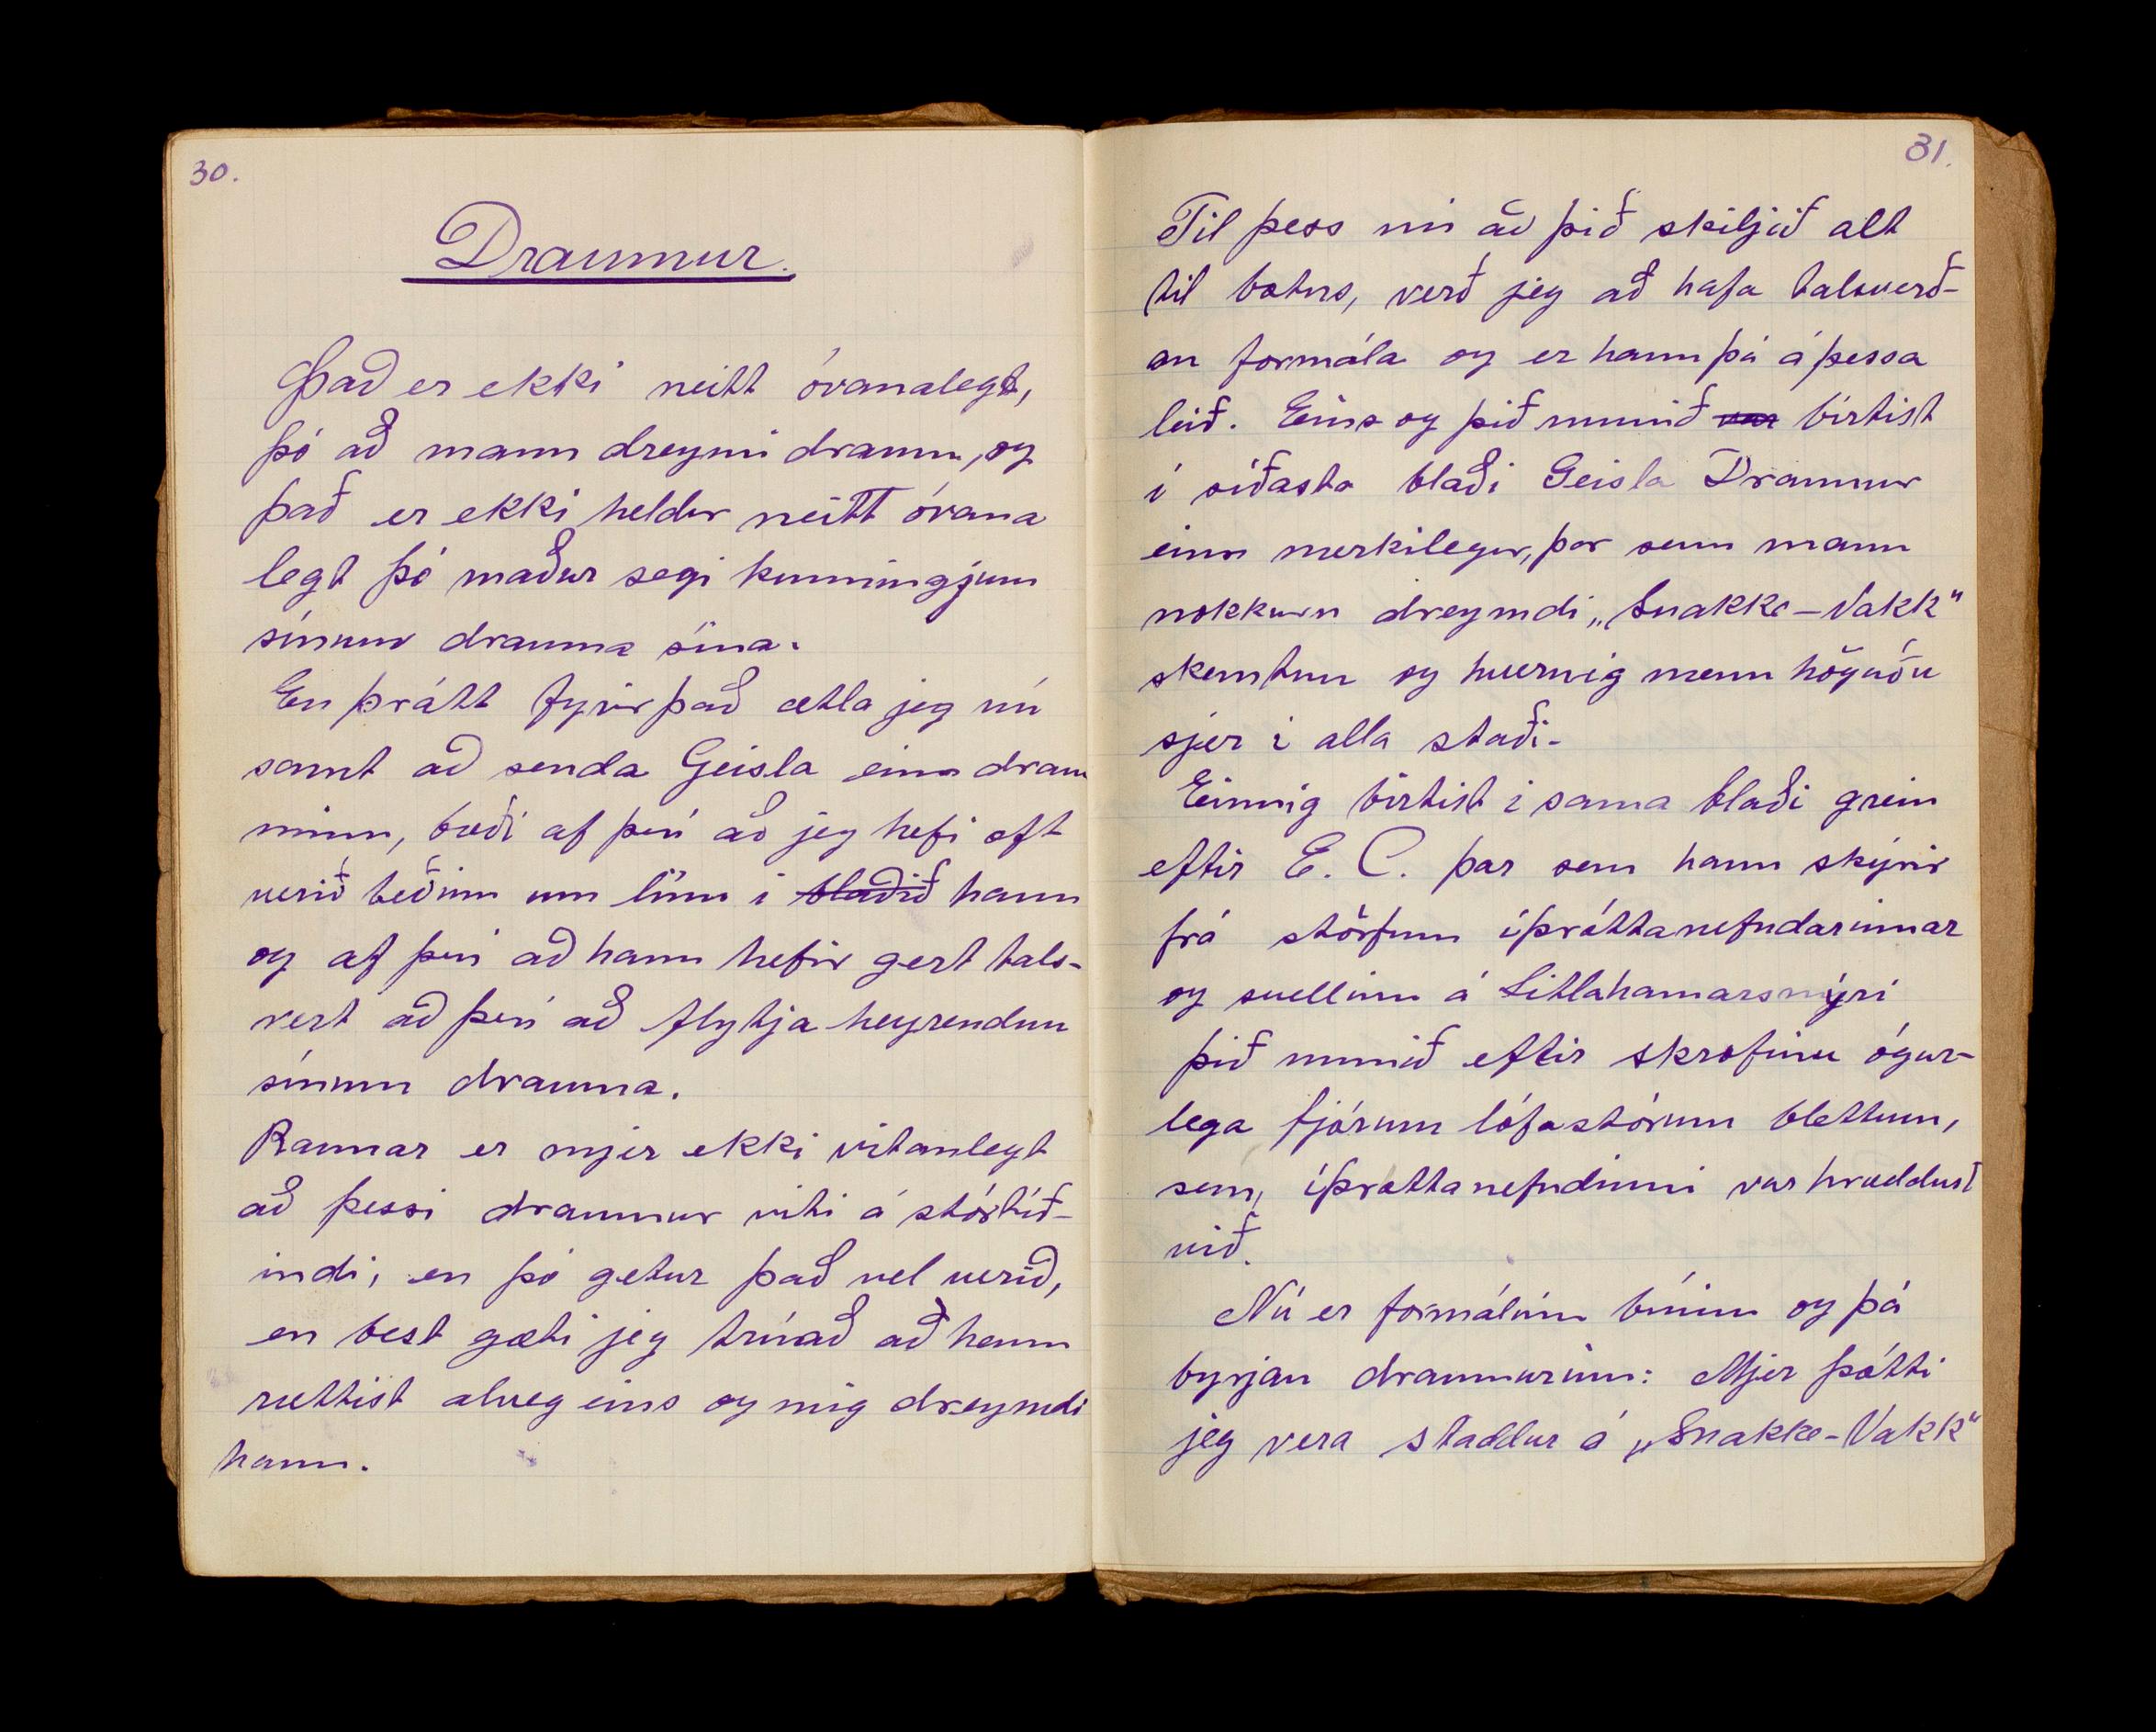 30.
Draumur.
Það er ekki neitt óvanalegt,
þó að mann dreymi draum, og
það er ekki heldur neitt óvana
legt þó maður segi kunningjum
sínum drauma sína.
En þrátt fyrir það ætla jeg nú
samt að senda Geisla einn draum
minn, bæði af því að jeg hefi oft
verið beðinn um línu í blaðið hann
og af því að hann hefir gert tals-
vert að því að flytja heyrendum
sínum drauma.
Raunar er mjer ekki vitanlegt
að þessi draumur viti á stórtíð-
indi, en þó getur það vel verið,
en best gæti jeg trúað að hann
rættist alveg eins og mig dreymdi
hann.
31.
Til þess nú að þið skiljið alt
til botns, verð jeg að hafa talsverð-
an formála og er hann þá á þessa
leið. Eins og þið munið var birtist
í síðasta blaði Geisla Draumur
einn merkilegur, þar sem mann
nokkurn dreymdi „Snakke-Vakk“
skemtun og hvernig menn höguðu
sjer i alla staði.
Einnig birtist i sama blaði grein
eftir E. C. þar sem hann skýrir
frá störfum íþróttanefndarinnar
og svellinu á Litlahamarsmýri
þið munið eftir skrofinu ógur-
lega fjórum lófastórum blettum,
sem, íþróttanefndinni var hræddust
við.
Nú er formálinn búinn og þá
byrjar draumurinn: Mjer þótti
jeg vera staddur á „Snakke-Vakk“